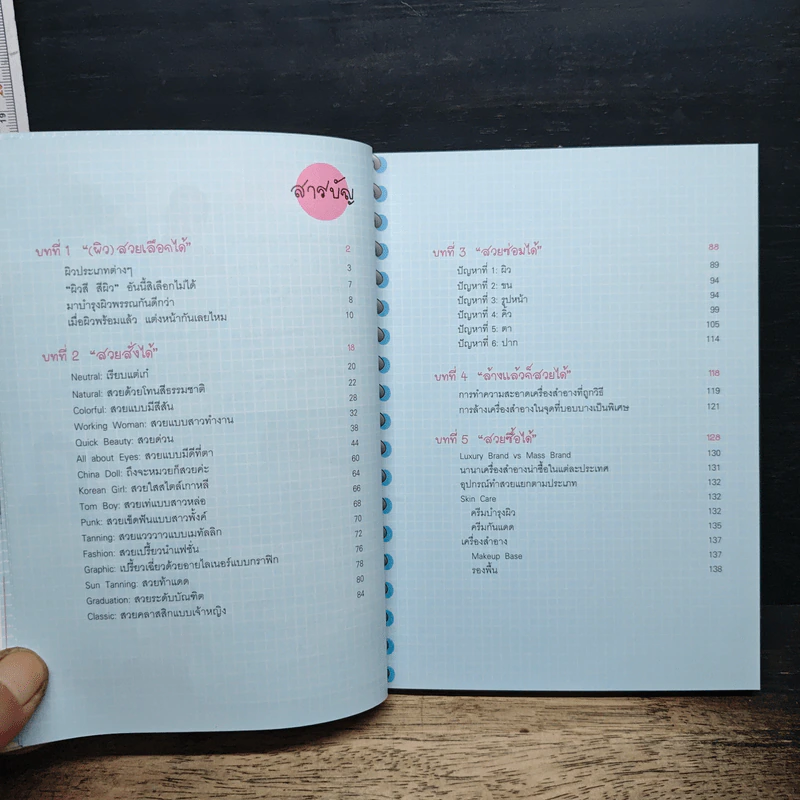 สารบัญ
บทที่ 1 "(ผิว) สวยเลือกได้" 2
ผิวประเภทต่างๆ 3
"ผิวสี สีผิว" อันนี้สิเลือกไม่ได้ 7
มาบำรุงผิวพรรณกันดีกว่า 8
เมื่อผิวพร้อมแล้ว แต่งหน้ากันเลยไหม 10
บทที่ 2 "สวยสั่งได้" 18
Neutral: เรียบแต่เก๋ 20
Natural: สวยด้วยโทนสีธรรมชาติ 22
Colorful: สวยแบบมีสีสัน 28
Working Woman: สวยแบบสาวทำงาน 32
Quick Beauty: สวยด่วน 38
All about Eyes: สวยแบบมีดีที่ตา 44
China Doll: ถึงจะหมวยก็สวยค่ะ 60
Korean Girl: สวยใสสไตล์เกาหลี 64
Tom Boy: สวยเท่แบบสาวหล่อ 66
Punk: สวยเข็ดฟันแบบสาวพั้งค์ 68
Tanning: สวยแวววาวแบบเมทัลลิก 70
Fashion: สวยเปรี้ยวนำแฟชั่น 72
Graphic: เปรี้ยวเฉี่ยวด้วยอายไลเนอร์แบบกราฟิก 76
Sun Tanning: สวยท้าแดด 78
Graduation: สวยระดับบัณฑิต 80
Classic: สวยคลาสสิกแบบเจ้าหญิง 84
บทที่ 3 "สวยซ่อมได้" 88
ปัญหาที่ 1: ผิว 89
ปัญหาที่ 2: ขน 94
ปัญหาที่ 3: รูปหน้า 94
ปัญหาที่ 4: คิ้ว 99
ปัญหาที่ 5: ตา 105
ปัญหาที่ 6: ปาก 114
บทที่ 4 "ล้างแล้วก็สวยได้" 118
การทำความสะอาดเครื่องสำอางที่ถูกวิธี 119
การล้างเครื่องสำอางในจุดที่บอบบางเป็นพิเศษ 121
บทที่ 5 "สวยซื้อได้" 128
Luxury Brand vs Mass Brand 130
นานาเครื่องสำอางน่าซื้อในแต่ละประเทศ 131
อุปกรณ์ทำสวยแยกตามประเภท 132
Skin Care 132
ครีมบำรุงผิว 132
ครีมกันแดด 135
เครื่องสำอาง 137
Makeup Base 137
รองพื้น 138